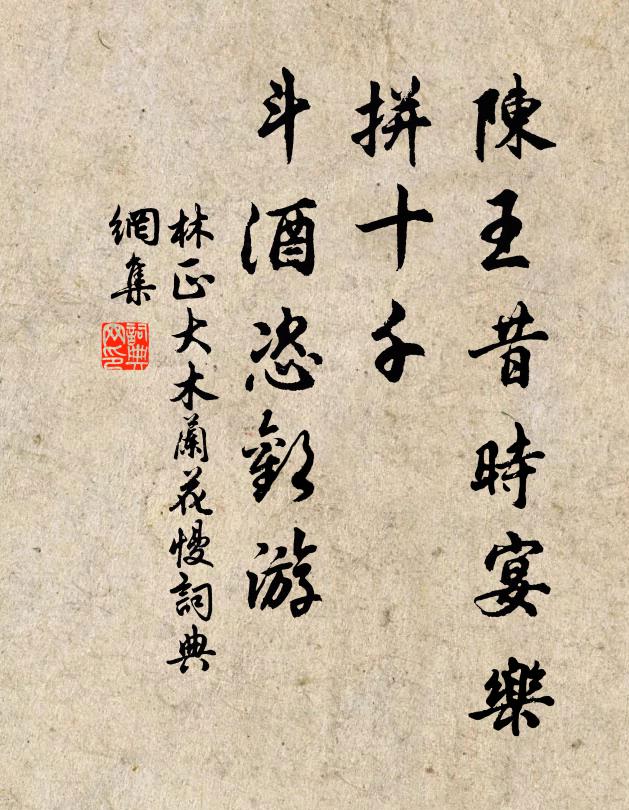 陳王昔時宴樂
拼十千
斗酒恣歡游
林正大木蘭花慢詞典
網集
詞典
网印